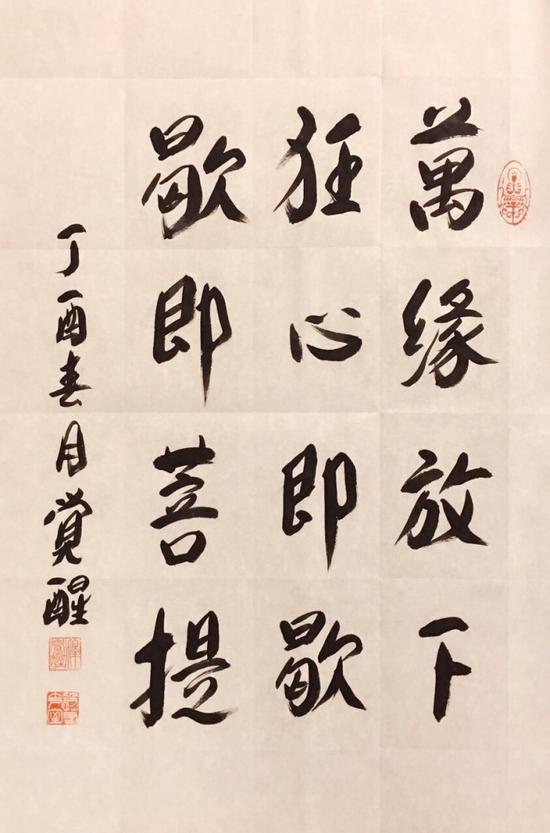 萬缘放下
狂心即歇
歇即菩提
丁酉春月觉醒